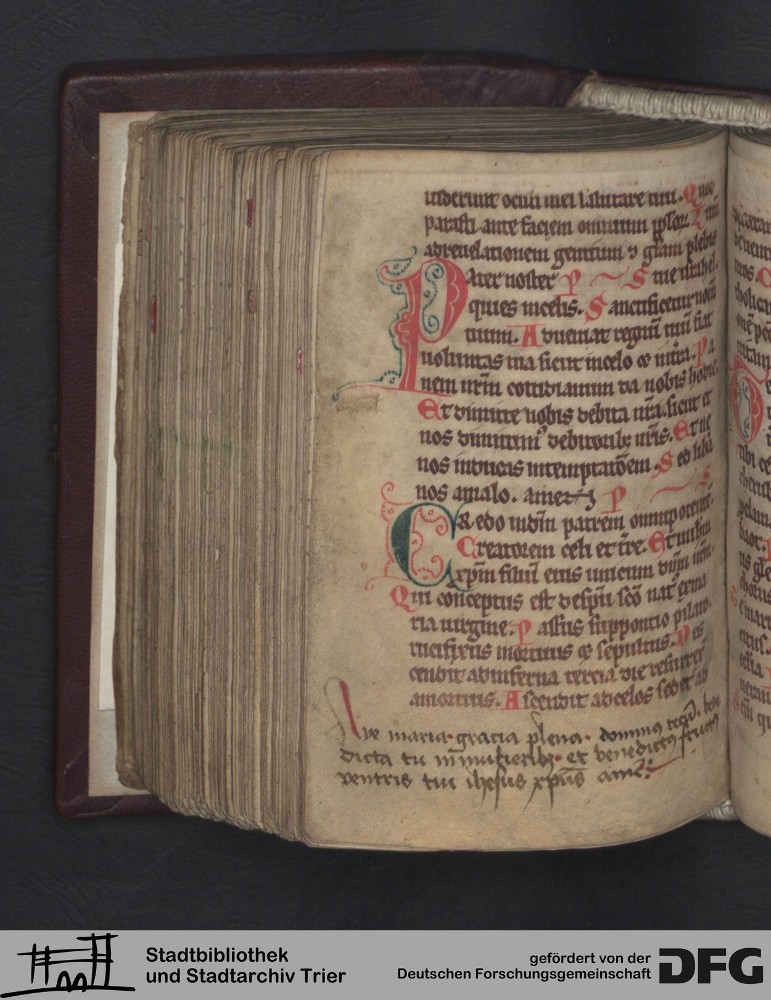 uiderunt oculi mei salutare tuu. Quod
parasti ante faciem omnium pplor. Lum
adreuelationem gentium ⁊ glam plebis
Pater noster P S tue israhel.
qui es incelis. Sanctificetur nom
tuum. Adueniat regnu tuu fiat
uoluntas tua sicut incelo et intra. Pa
nem nrm cottidianum da nobis hodie.
Et dimitte nobis debita nra. sicut et
nos dimittim debitorib nris. Et ne
nos inducas intemptatoem. Sed liba
nos amalo. amen P S
Credo indm patrem omnipotente.
Creatorem celi et tre. Et in ihm
xpm filiu eius unicum dnm nrm.
Qui conceptus est despu sco nat exma
ria uirgine. Passus subpontio pilato.
crucifixus mortuus et sepultus. Des
cendit adinferna tercia die resurrex
amortuis. Ascendit adcelos sedet ad
Aue maria gracia plena. dominus tecu. bene
dicta tu in mulierib et benedictus fructus
ventris tui ihesus xpus ame.
Stadtbibliothek
und Stadtarchiv Trier
gefördert von der
Deutschen Forschungsgemeinschaft
DFG